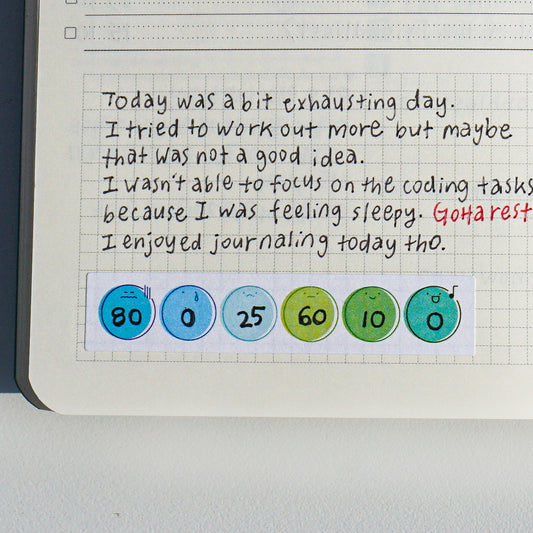 Today was a bit exhausting day.
I tried to work out more but maybe
that was not a good idea.
I wasn't able to focus on the coding tasks
because I was feeling sleepy. Gotta rest
I enjoyed journaling today tho.
80 0 25 60 10 0